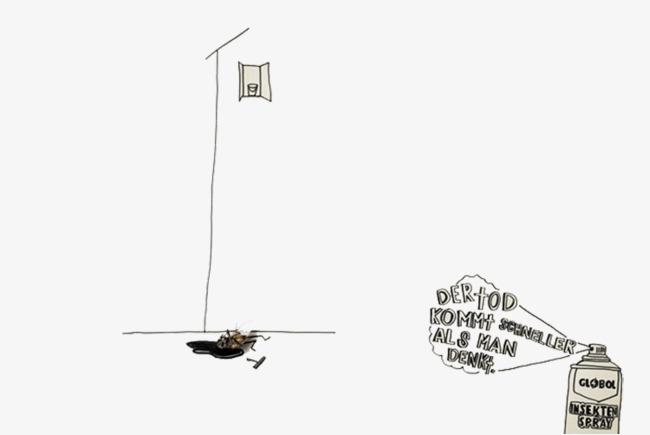 DER TOD
KOMMT SCHNELLER
ALS MAN
DENKT.
GLØBOL
INSEKTEN
SPRAY